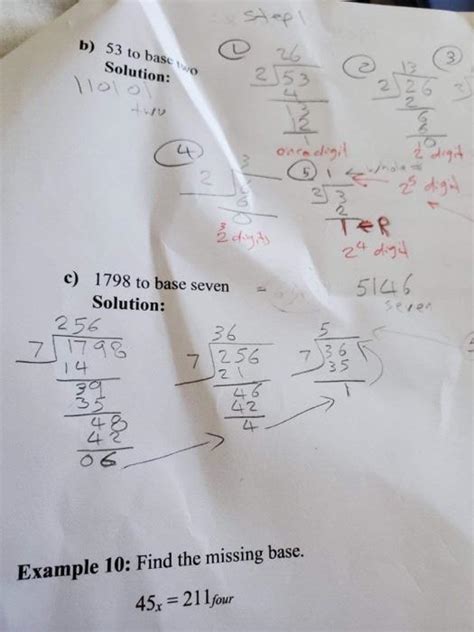 step 1
b) 53 to base two
Solution:
110101
two
1
26
2 53
4
13
12
1
ones digit
2
13
2 26
2
6
6
0
2 digit
3
4
3
2
6
0
2^3 digits
5
1
2 3
2
1 ← R
2^4 digit
2^5 digit
c) 1798 to base seven
Solution:
= 5146
seven
256
7 1798
14
39
35
48
42
06
36
7 256
21
46
42
4
5
7 36
35
1
Example 10: Find the missing base.
45x = 211four